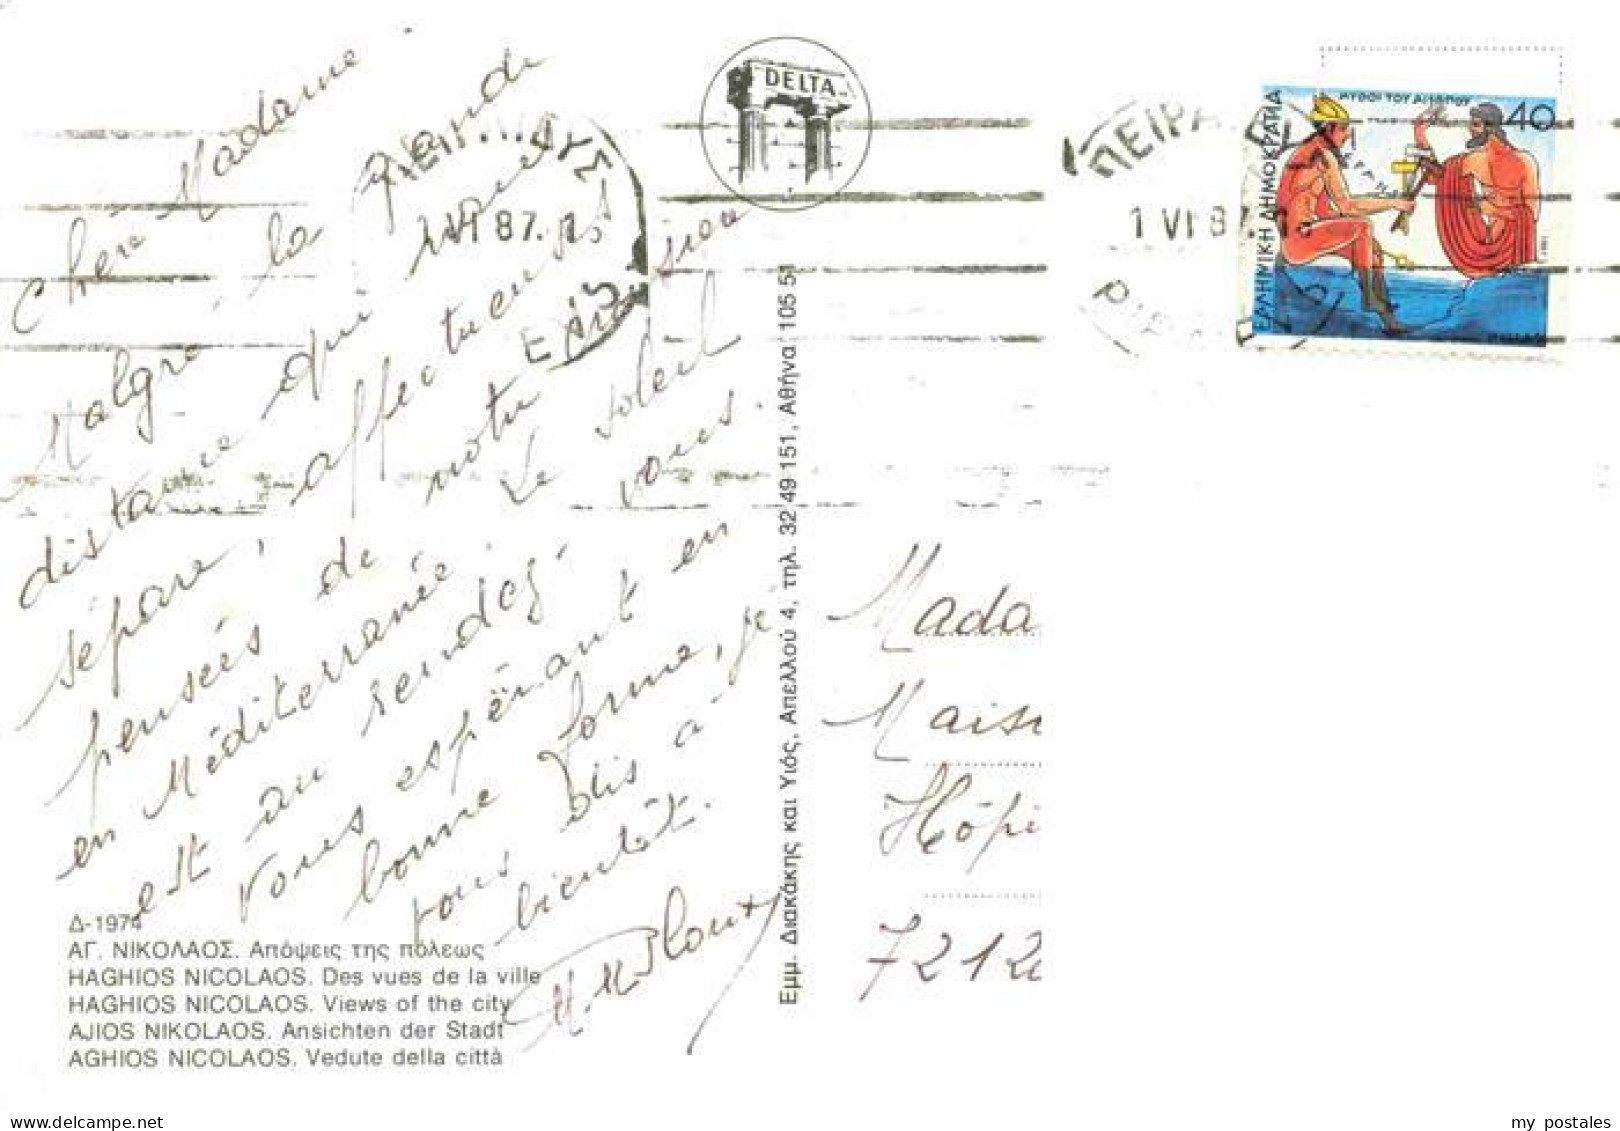 Chère Madame
Malgré la grande
distance qui nous
sépare, affectueuses
pensées de notre croisière
en Méditerranée. Le soleil
est au rendez-vous.
Vous espérant en
bonne forme, je
vous dis à
bientôt.
Δ-1974
ΑΓ. ΝΙΚΟΛΑΟΣ. Απόψεις της πόλεως
HAGHIOS NICOLAOS. Des vues de la ville
HAGHIOS NICOLAOS. Views of the city
AJIOS NIKOLAOS. Ansichten der Stadt
AGHIOS NICOLAOS. Vedute della città
DELTA
Εμμ. Διακάκης και Υιός, Απελλού 4, τηλ. 32 49 151, Αθήνα 105 51
VI 87
1 VI 87
ΕΛΛΗΝΙΚΗ ΔΗΜΟΚΡΑΤΙΑ
ΜΥΘΟΙ ΤΟΥ ΑΙΣΩΠΟΥ
40
Mada
Mais
Hôpi
7212
my postales